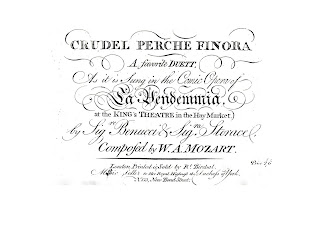 CRUDEL PERCHE FINORA
A favorite DUETT,
As it is Sung in the Comic Opera of
La Vendemmia,
at the KING's THEATRE in the Hay Market,
by Sigr. Benucci & Siga. Storace,
Composed by W. A. MOZART.
London, Printed & Sold by Rt. Birchall,
Music Seller to her Royal Highness the Dutchess of York,
New Bond Street.